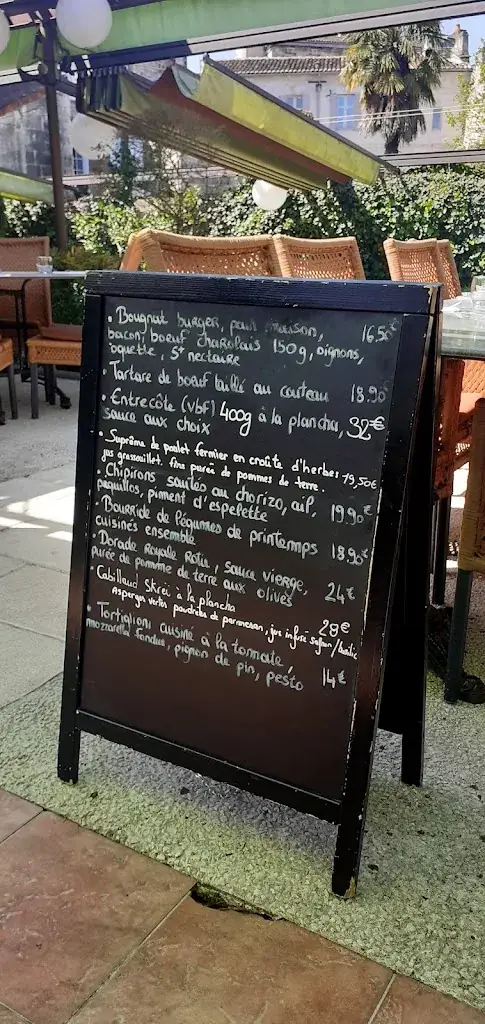 • Bougnat burger, pain maison, 16.50€
bacon, boeuf charolais 150g, oignons,
roquette, St nectaire
• Tartare de boeuf taillé au couteau 18.90€
• Entrecôte (VBF) 400g à la plancha, 32€
sauce aux choix
• Suprême de poulet fermier en croûte d'herbes 19,50€
jus grassouillet. fine purée de pommes de terre.
• Chipirons sautés au chorizo, ail,
piquillos, piment d'espelette 19.90€
• Bourride de légumes de printemps
cuisinés ensemble 18.90€
• Dorade Royale Rotie, sauce vierge,
purée de pomme de terre aux olives 24€
• Cabillaud Skreï à la plancha
asperges vertes poudrées de parmesan, jus infusé safran/ 28€
• Tortiglioni cuisiné à la tomate,
mozzarella fondue, pignon de pin, pesto 14€